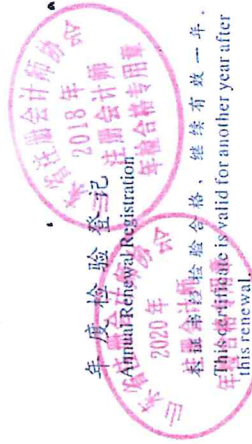 年度检验登记
Annual Renewal Registration
本证书经检验合格，继续有效一年。
This certificate is valid for another year after
this renewal.
省注册会计师协会
2018年
注册会计师
年检合格专用章
山东省注册会计师协会
2020年
注册会计师
年检合格专用章